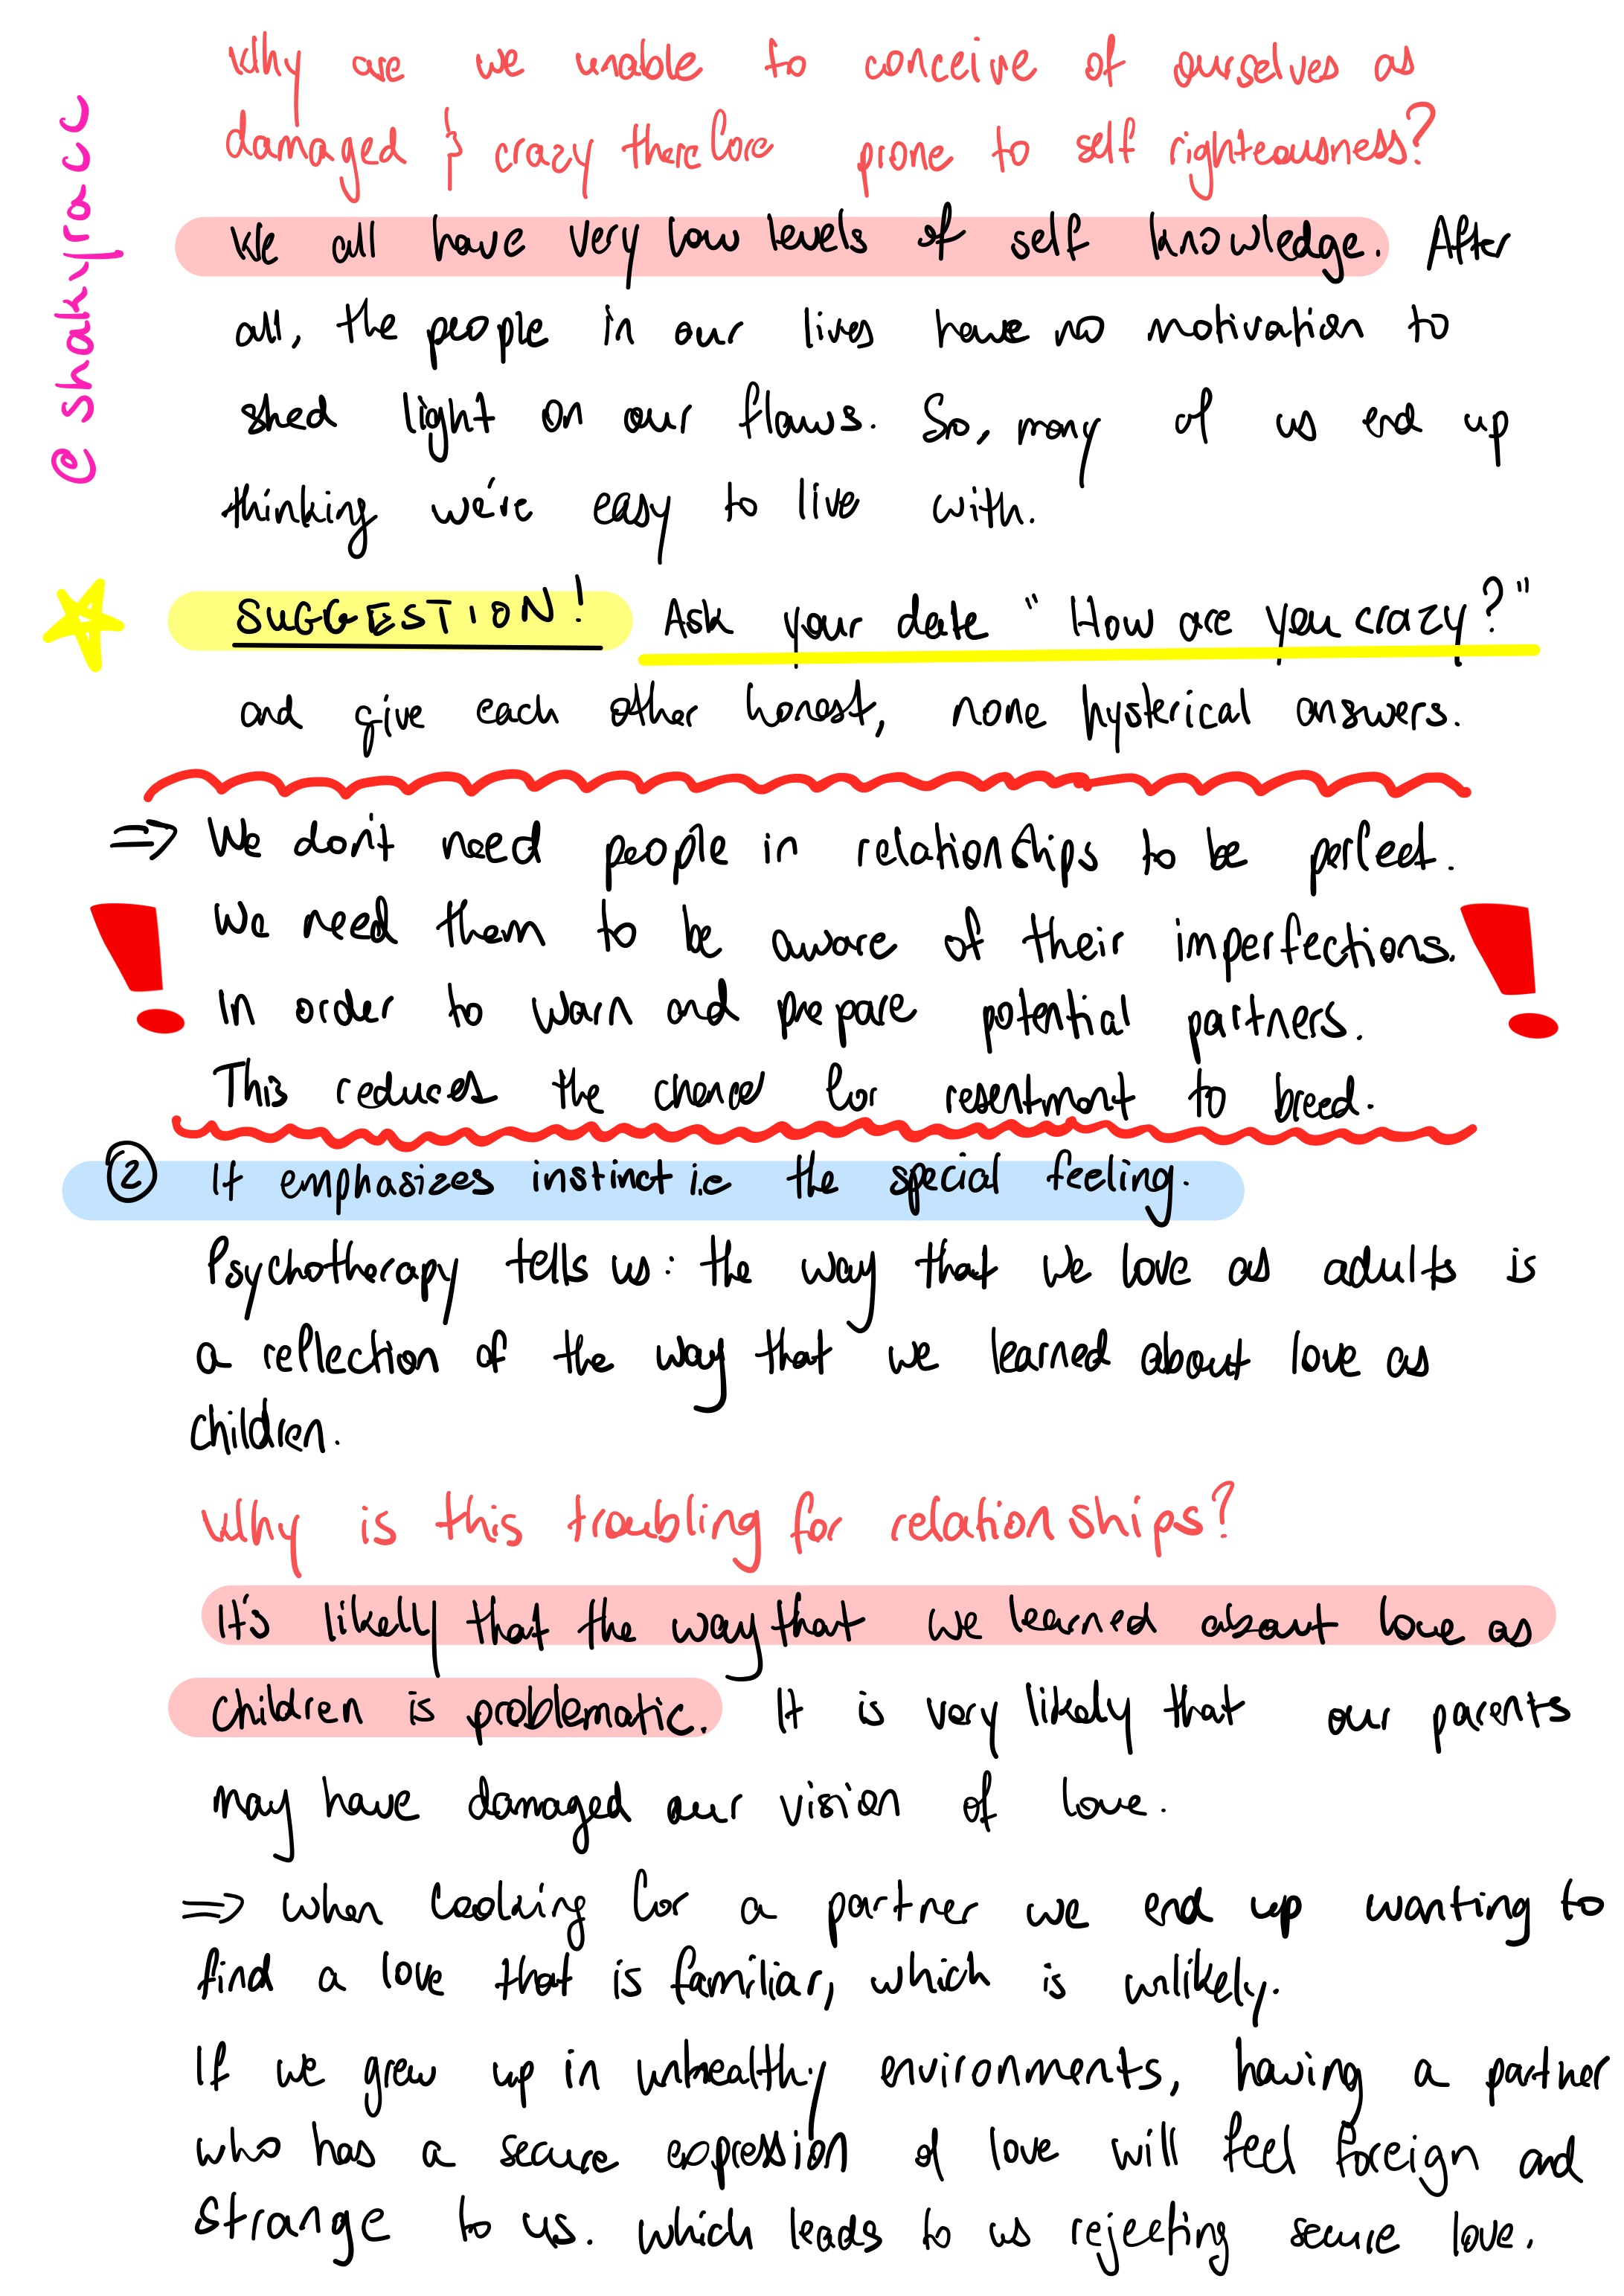 Why are we unable to conceive of ourselves as
damaged & crazy therefore prone to self righteousness?
We all have very low levels of self knowledge. After
all, the people in our lives have no motivation to
shed light on our flaws. So, many of us end up
thinking we're easy to live with.
SUGGESTION! Ask your date "How are you crazy?"
and give each other honest, none hysterical answers.
⇒ We don't need people in relationships to be perfect.
We need them to be aware of their imperfections.
In order to warn and prepare potential partners.
This reduces the chance for resentment to breed.
② It emphasizes instinct i.e the special feeling.
Psychotherapy tells us: the way that we love as adults is
a reflection of the way that we learned about love as
children.
Why is this troubling for relationships?
It's likely that the way that we learned about love as
children is problematic. It is very likely that our parents
may have damaged our vision of love.
⇒ when looking for a partner we end up wanting to
find a love that is familiar, which is unlikely.
If we grew up in unhealthy environments, having a partner
who has a secure expression of love will feel foreign and
strange to us. which leads to us rejecting secure love.
@shakyracc